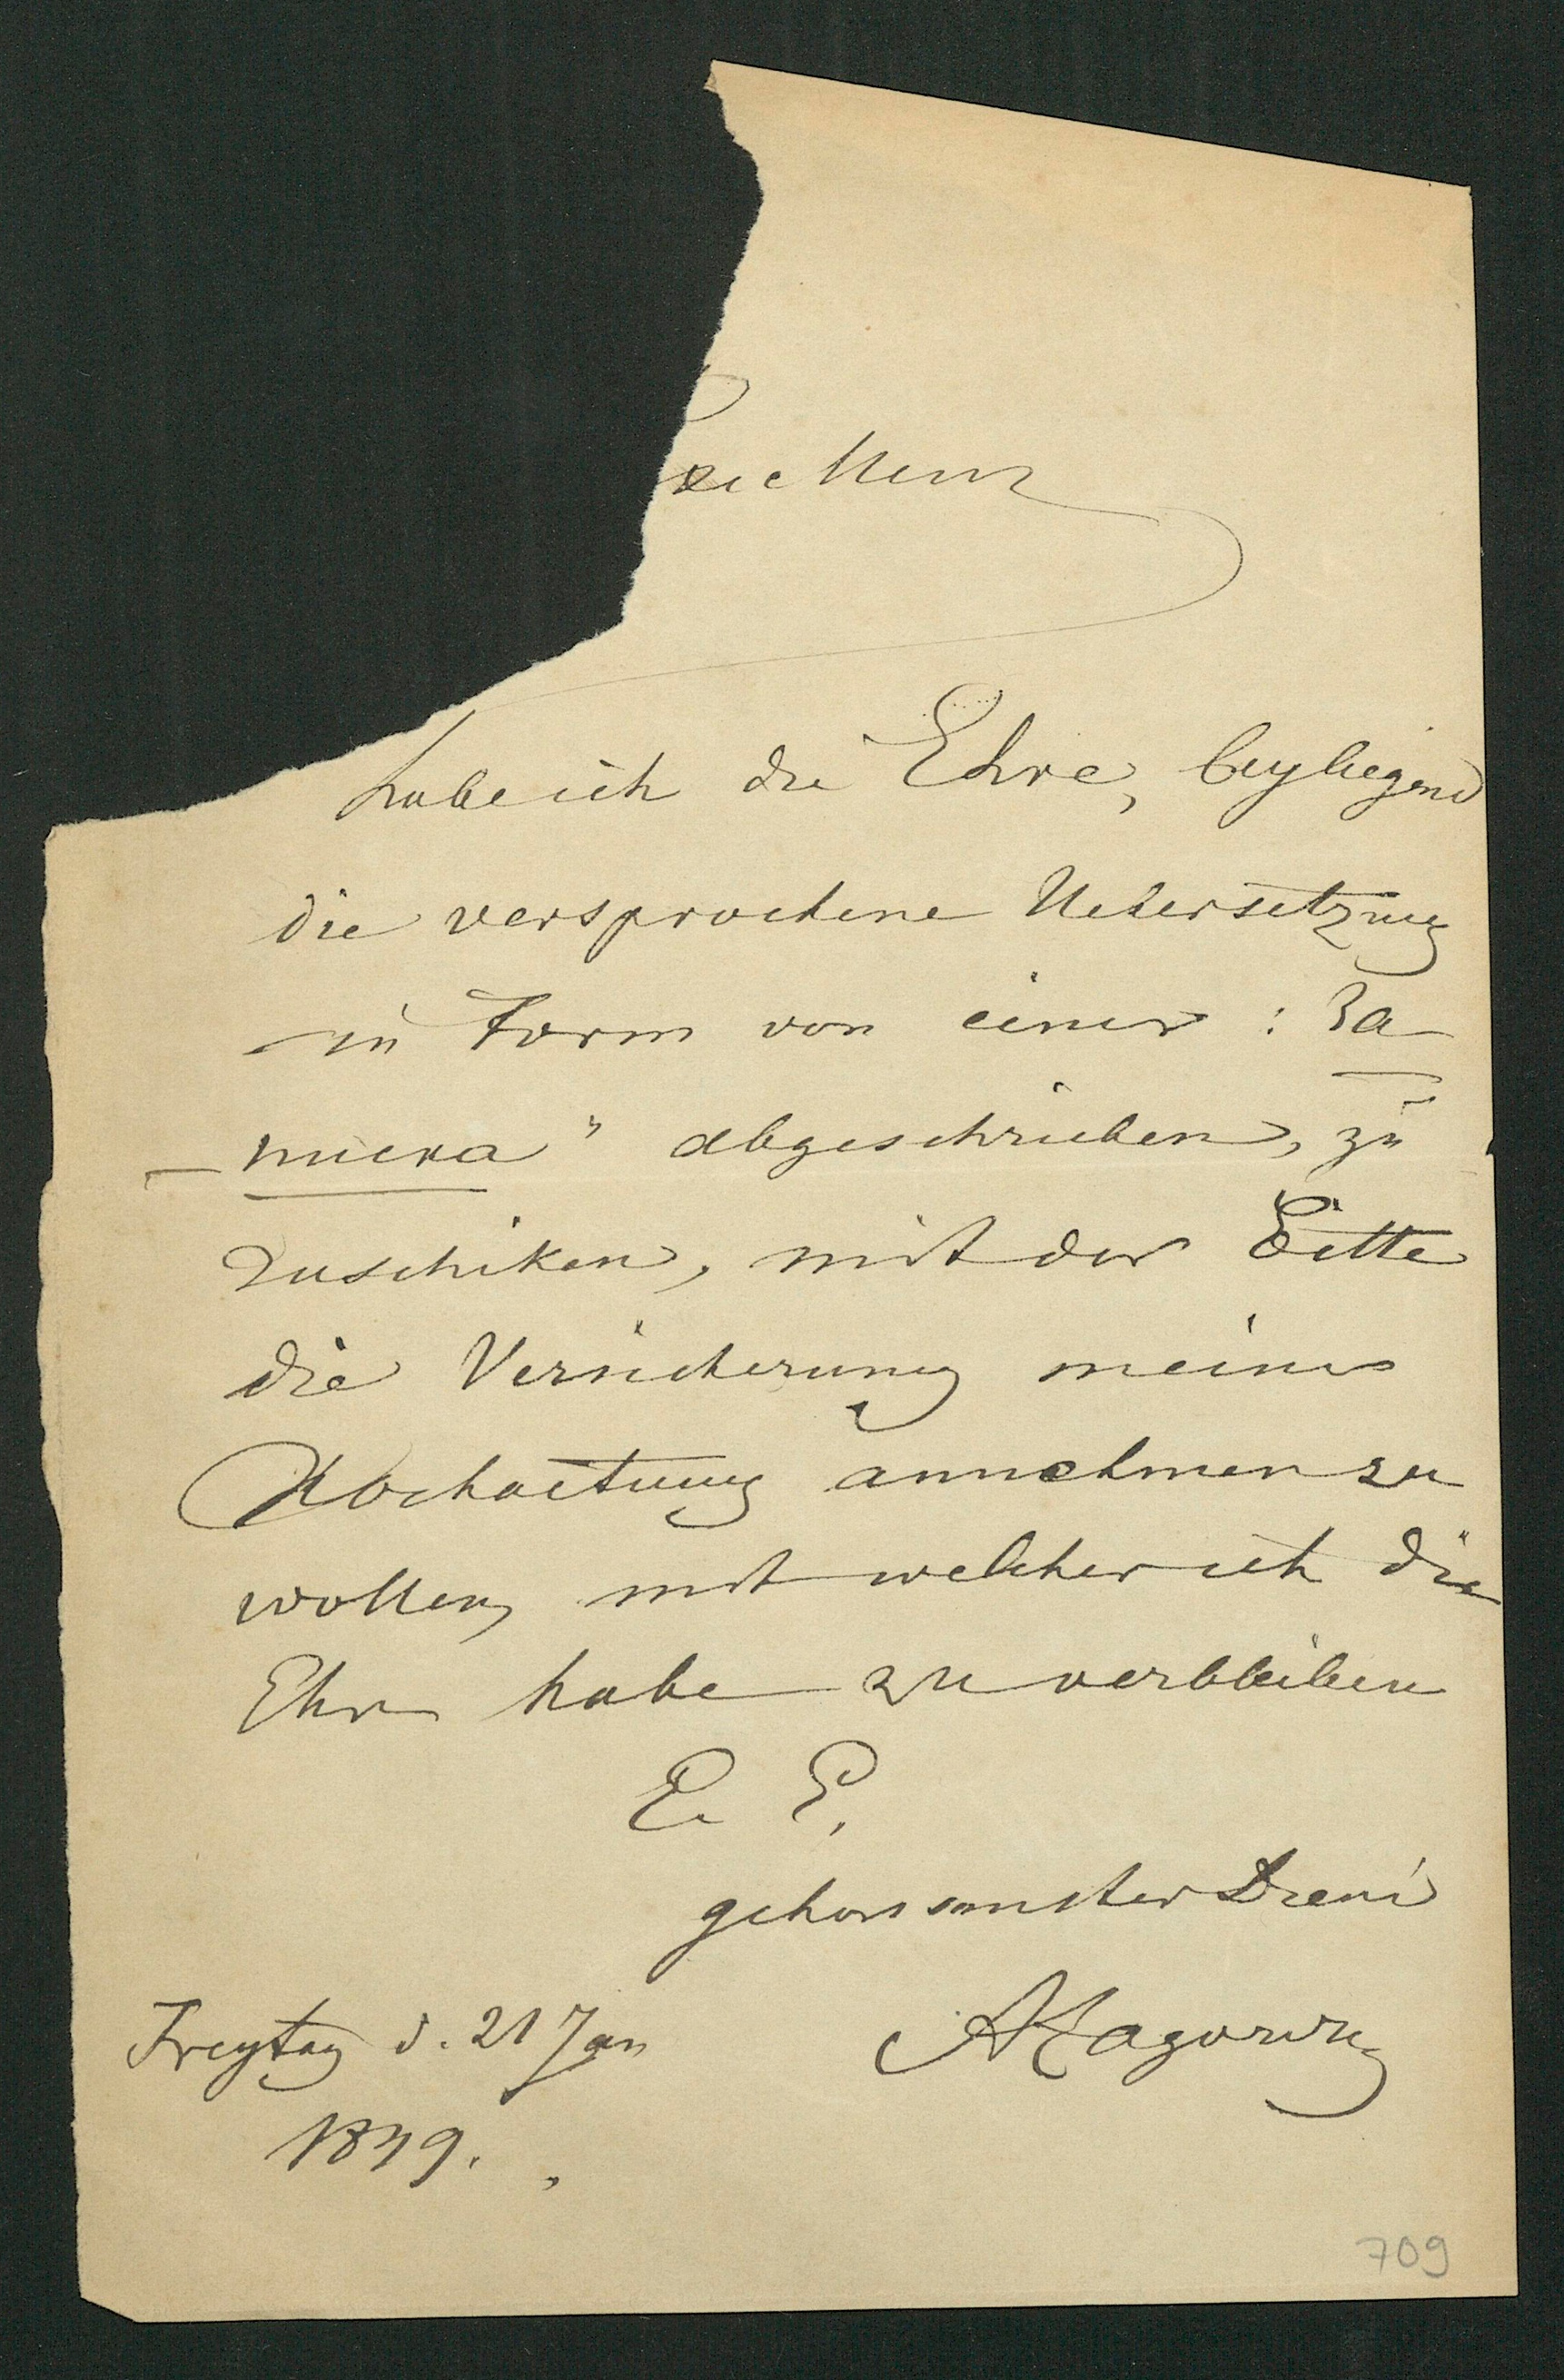 habe ich die Ehre, beyliegend
die versprochene Uebersetzung
in Form von einer : За-
-писка" abgeschrieben, zu
zuschiken, mit der Bitte
die Versicherung meiner
Hochactung annehmen zu
wollen, mit welcher ich die
Ehre habe zu verbleiben
E. E.
gehorsamster Diener
Freytag d. 21 Jan
1849.
709